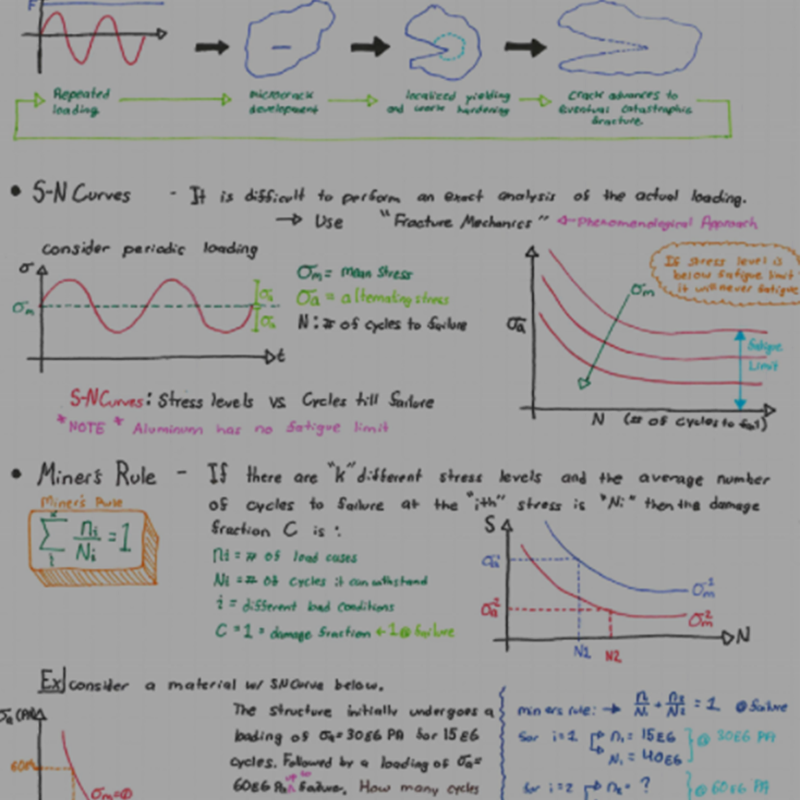 F
Repeated loading
microcrack development
localized yielding and work hardening
Crack advances to eventual catastrophic fracture
• S-N Curves - It is difficult to perform an exact analysis of the actual loading.
→ Use "Fracture Mechanics" ← Phenomenological Approach
consider periodic loading
σ
σm
σa
σa
t
σm = mean stress
σa = alternating stress
N : # of cycles to failure
If stress level is
below fatigue limit
it will never fatigue
σm
σa
Fatigue
Limit
N (# of cycles to fail)
S-N Curves: Stress levels vs. Cycles till failure
*NOTE* Aluminum has no fatigue limit
• Miner's Rule - If there are "k" different stress levels and the average number
of cycles to failure at the "ith" stress is "Ni" then the damage
fraction C is:
Miner's Rule
Σ ni/Ni = 1
ni = # of load cases
Ni = # of cycles it can withstand
i = different load conditions
C = 1 = damage fraction ← 1 @ failure
S
σa
σa²
σm¹
σm²
N
N1
N2
Ex| consider a material w/ SN Curve below.
σa (PA)
60E6
σm=0
The structure initially undergoes a
loading of σa=30E6 PA for 15E6
cycles. Followed by a loading of σa=
60E6 Pa to failure. How many cycles
miners rule: → n₁/N₁ + n₂/N₂ = 1 @ failure
for i=1 n₁ = 15E6
N₁ = 40E6
@ 30E6 PA
for i=2 n₂ = ?
@ 60E6 PA